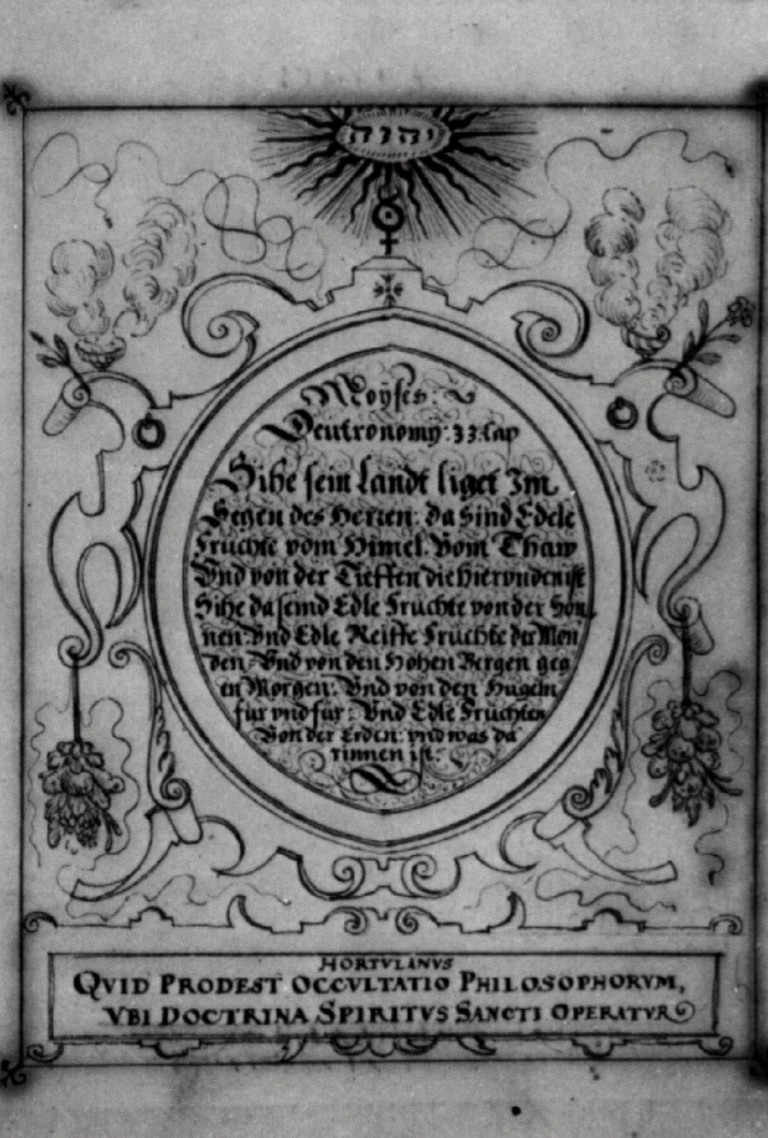 יהוה
Moÿses:
Deutronomy: 33. Cap
Sihe sein Landt liget Im
Segen des Herren: da sind Edele
Fruchte vom Himel. Vom Thaw
Vnd von der Tieffen die hie vnden ist
Sihe da seind Edle Fruchte von der Son
nen: Vnd Edle Reiffe Fruchte der Mon
den: Vnd von den Hohen Bergen geg
en Morgen: Vnd von den Hugeln
fur vnd fur: Vnd Edle Fruchten
Von der Erden: vnd was da
rinnen ist.
HORTVLANVS
QVID PRODEST OCCVLTATIO PHILOSOPHORVM,
VBI DOCTRINA SPIRITVS SANCTI OPERATVR